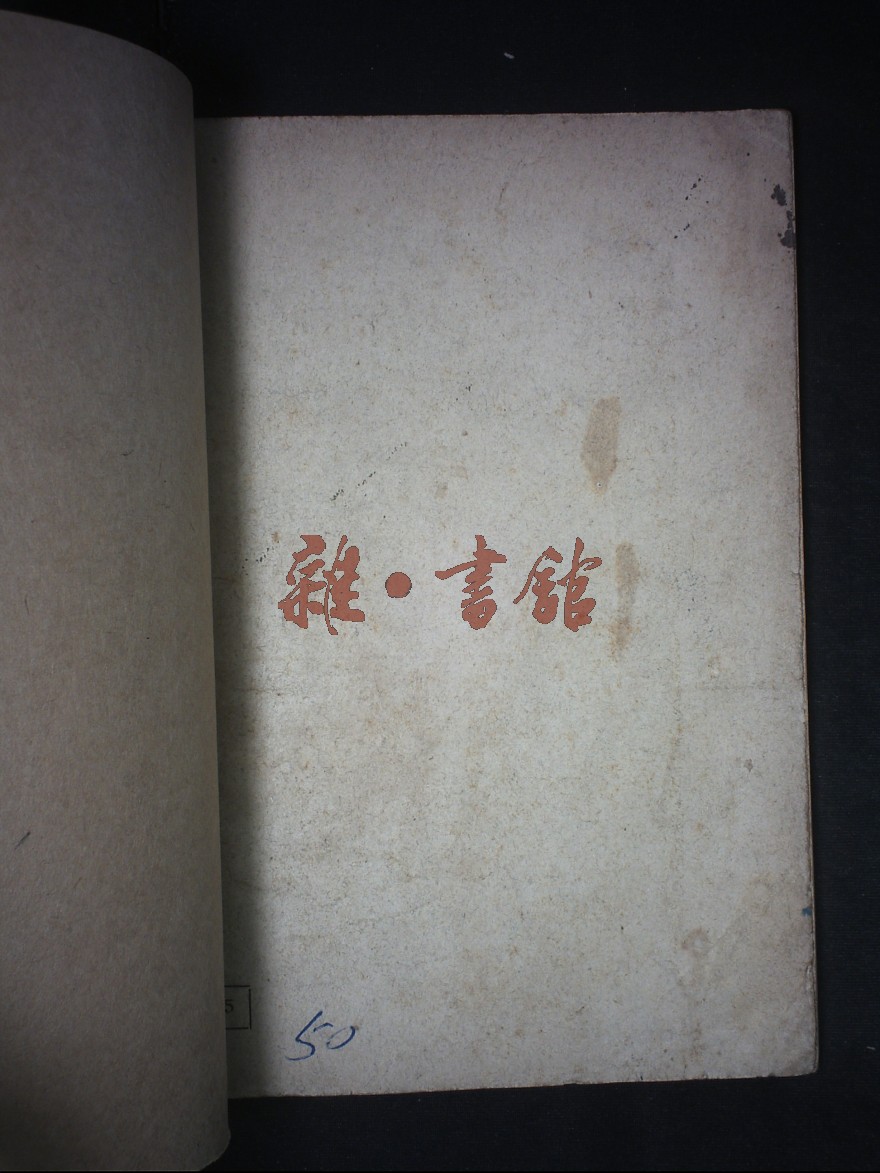 雜·書館
5
50